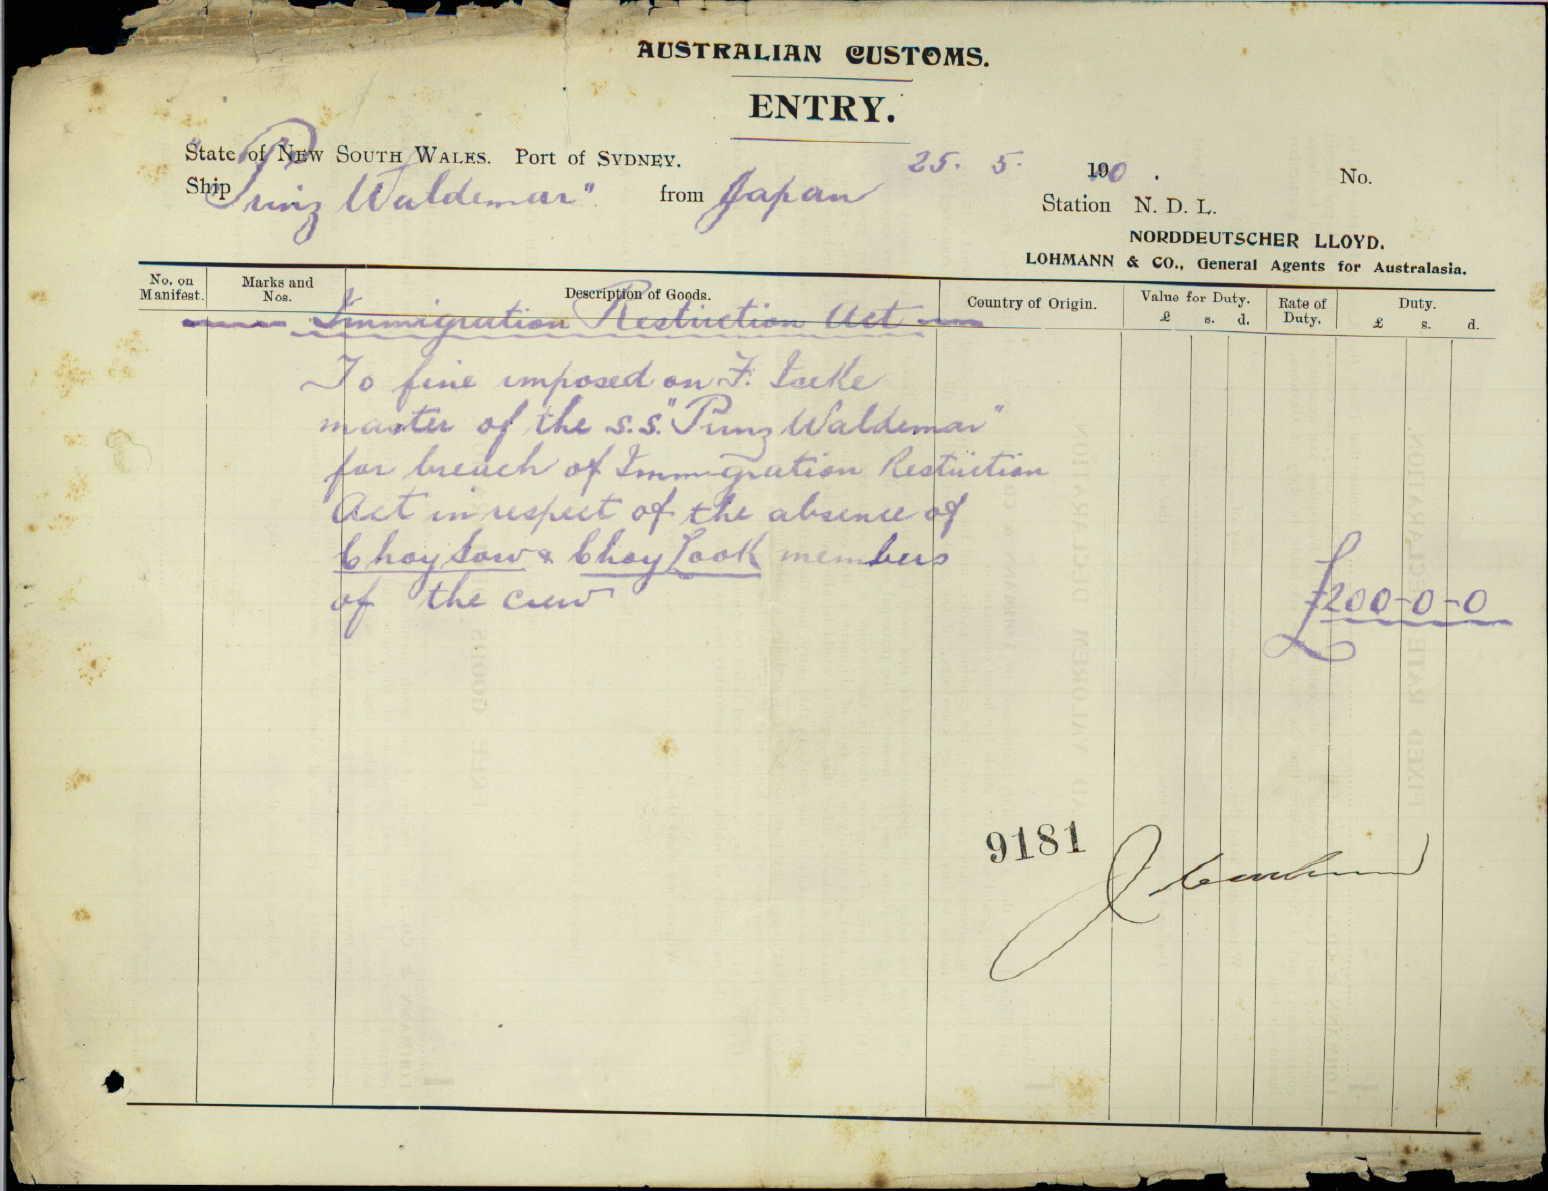 AUSTRALIAN CUSTOMS.
ENTRY.
State of NEW SOUTH WALES. Port of SYDNEY. 25. 5. 190 . No.
Ship "Prinz Waldemar" from Japan
Station N. D. L.
NORDDEUTSCHER LLOYD.
LOHMANN & CO., General Agents for Australasia.
No. on Manifest. Marks and Nos. Description of Goods. Country of Origin. Value for Duty. £ s. d. Rate of Duty. Duty. £ s. d.
Immigration Restriction Act
To fine imposed on F.
master of the s.s. "Prinz Waldemar"
for breach of Immigration Restriction
Act in respect of the absence of
Choy Sow & Choy Look members
of the crew £200-0-0
9181